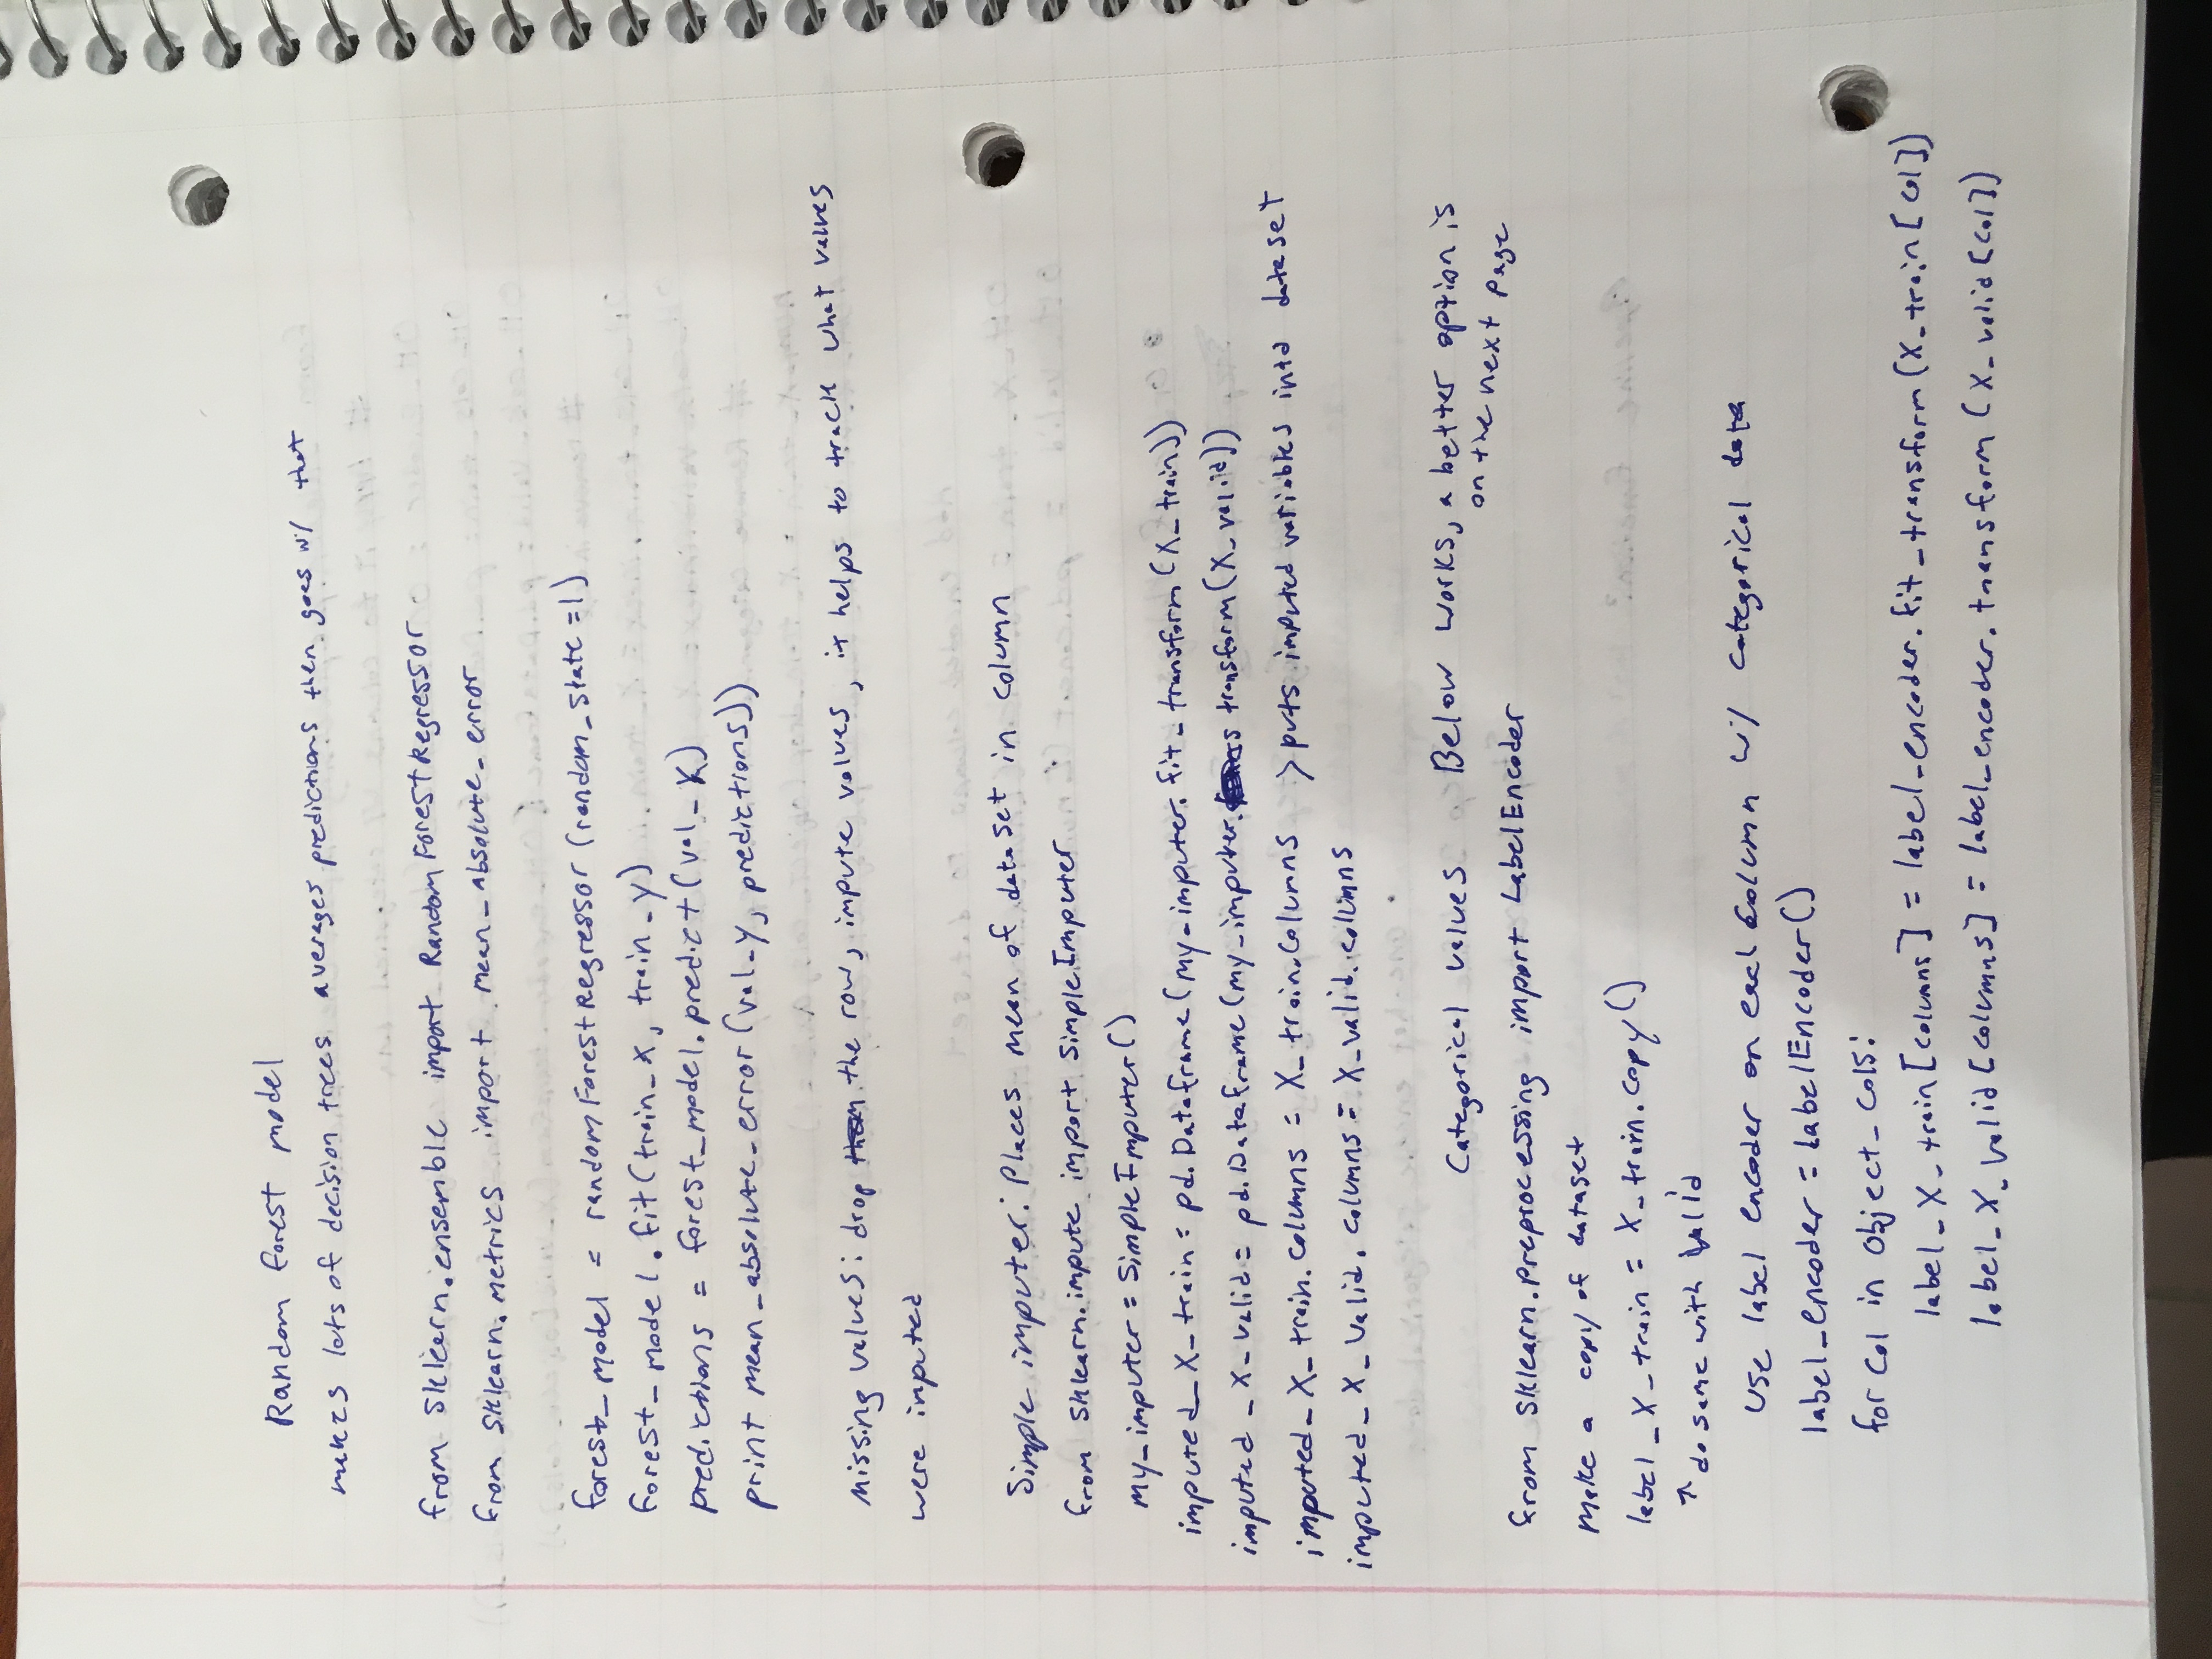 Random forest model
makes lots of decision trees averages predictions then goes w/ that
from sklearn.ensemble import RandomForestRegressor
from sklearn.metrics import mean_absolute_error
forest_model = randomForestRegressor (random_state=1)
forest_model.fit(train_x, train_y)
predictions = forest_model.predict(val_X)
print mean_absolute_error(val_y, predictions))
Missing values: drop the row, impute values, it helps to track what values
were imputed
Simple imputer: Places mean of dataset in column
from sklearn.impute import SimpleImputer
my_imputer = SimpleImputer()
imputed_X_train = pd.Dataframe(my_imputer.fit_transform(X_train))
imputed_X_valid = pd.Dataframe(my_imputer.transform(X_valid))
imputed_X_train.columns = X_train.columns > puts imputed variables into dataset
imputed_X_valid.columns = X_valid.columns
Categorical values Below works, a better option is
on the next page
from sklearn.preprocessing import LabelEncoder
Make a copy of dataset
label_X_train = X_train.copy()
↑ do same with valid
Use label encoder on each column w/ categorical data
label_encoder = LabelEncoder()
for col in object_cols:
label_X_train[columns] = label_encoder.fit_transform(X_train[col])
label_X_valid[columns] = label_encoder.transform(X_valid[col])